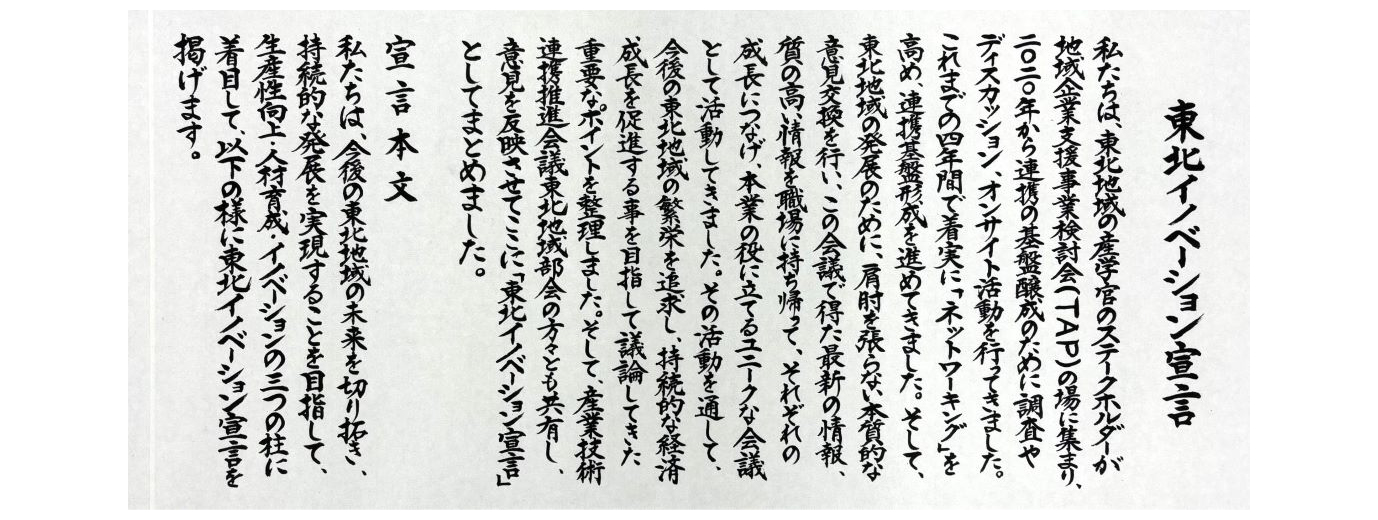 東北イノベーション宣言
私たちは、東北地域の産学官のステークホルダーが
地域企業支援事業検討会(TAP)の場に集まり、
二〇二〇年から連携の基盤醸成のために調査や
ディスカッション、オンサイト活動を行ってきました。
これまでの四年間で着実に「ネットワーキング」を
高め、連携基盤形成を進めてきました。そして、
東北地域の発展のために、肩肘を張らない本質的な
意見交換を行い、この会議で得た最新の情報、
質の高い情報を職場に持ち帰って、それぞれの
成長につなげ、本業の役に立てるユニークな会議
として活動してきました。その活動を通して、
今後の東北地域の繁栄を追求し、持続的な経済
成長を促進する事を目指して議論してきた
重要なポイントを整理しました。そして、産業技術
連携推進会議東北地域部会の方々とも共有し、
意見を反映させてここに「東北イノベーション宣言」
としてまとめました。
宣言本文
私たちは、今後の東北地域の未来を切り拓き、
持続的な発展を実現することを目指して、
生産性向上・人材育成・イノベーションの三つの柱に
着目して、以下の様に東北イノベーション宣言を
掲げます。